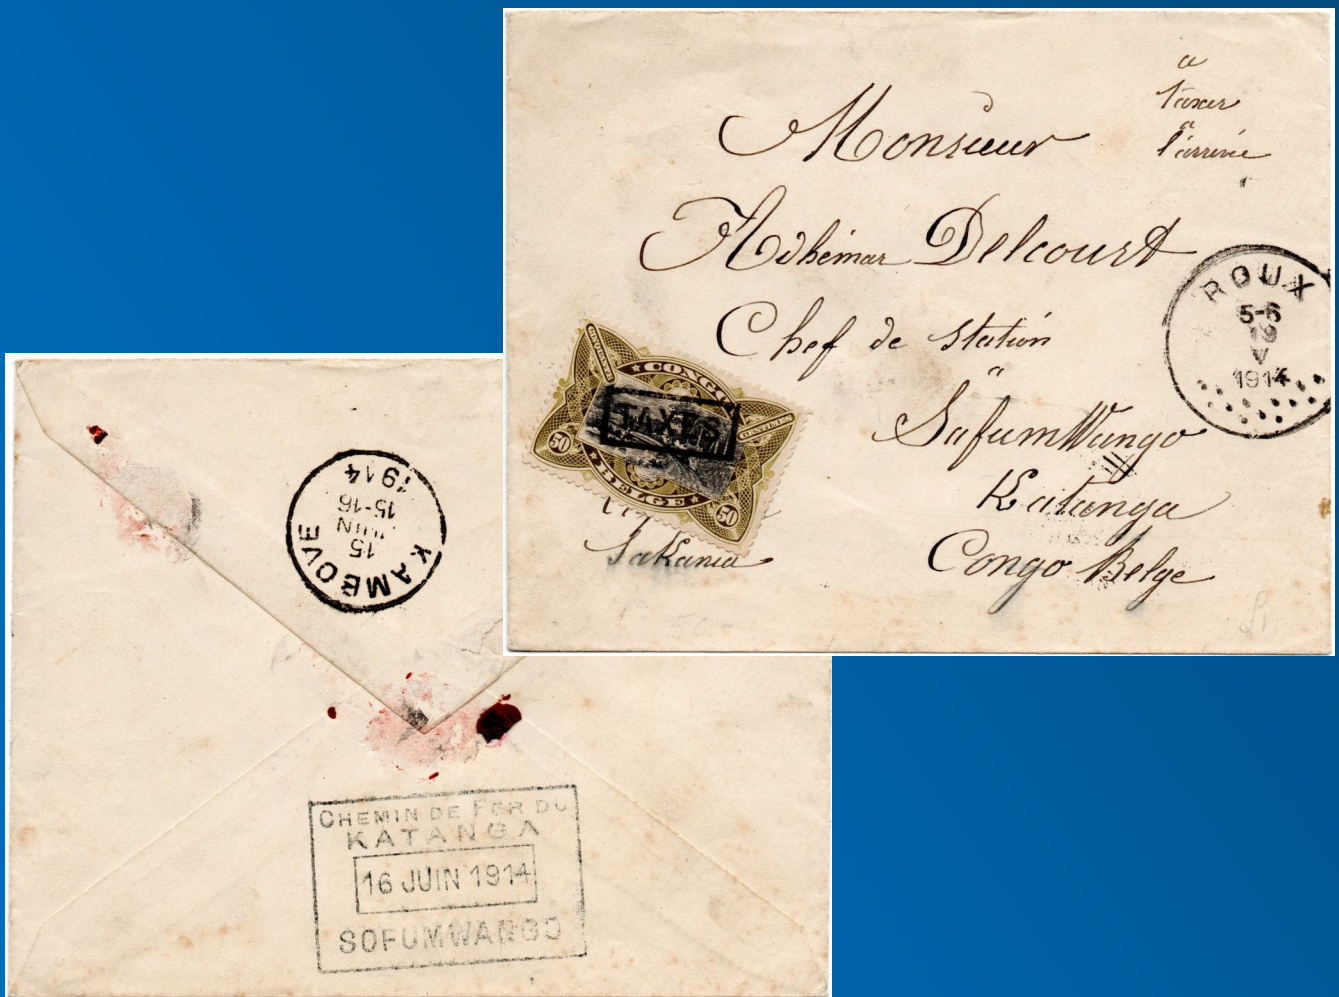 a
taxer
a
l'arrivée
Monsieur
Adhémar Delcourt
Chef de station
a
SafumWango
Katanga
Congo Belge
Sakania
ROUX
5-6
19
V
1914
CONGO
BELGE
50
50
TAXES
KAMBOVE
15
JUIN
15-16
1914
CHEMIN DE FER DU
KATANGA
16 JUIN 1914
SOFUMWANGO